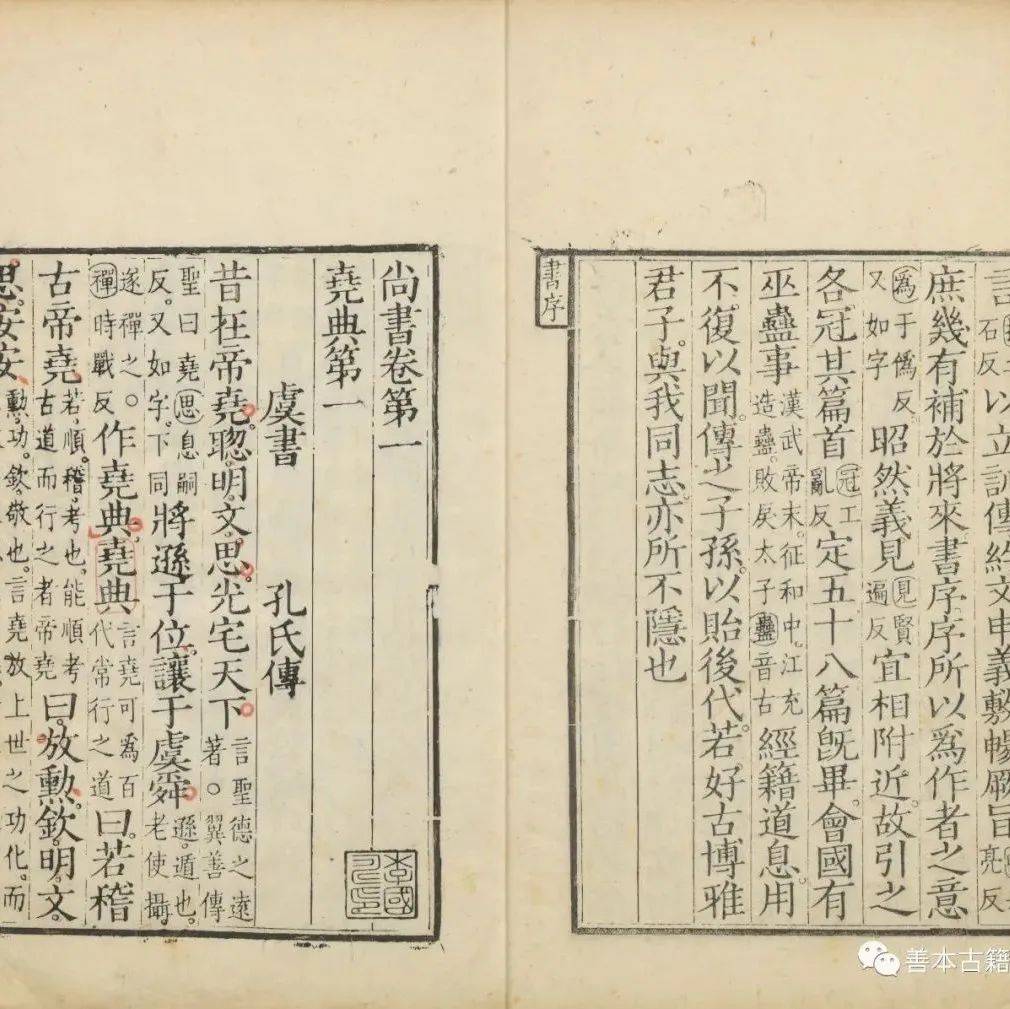 以立訓傳約文申義敷暢厥旨
石反
亮反
庶幾有補於將來書序序所以爲作者之意
爲于僞反
又如字
昭然義見
見賢
遍反
宜相附近故引之
各冠其篇首
冠工
亂反
定五十八篇旣畢會國有
巫蠱事
漢武帝末征和中江充
造蠱敗戾太子蠱音古
經籍道息用
不復以聞傳之子孫以貽後代若好古博雅
君子與我同志亦所不隱也
書序
尚書卷第一
堯典第一
虞書 孔氏傳
昔在帝堯聦明文思光宅天下
言聖德之遠
著○翼善傳
聖曰堯思息嗣
反又如字下同
將遜于位讓于虞舜
遜遁也
老使攝
遂禪之○
禪時戰反
作堯典堯典
言堯可爲百
代常行之道
曰若稽
古帝堯
若順稽考也能順考
古道而行之者帝堯
曰放勳欽明文
思安安
勳功欽敬也言堯放上世之功化而